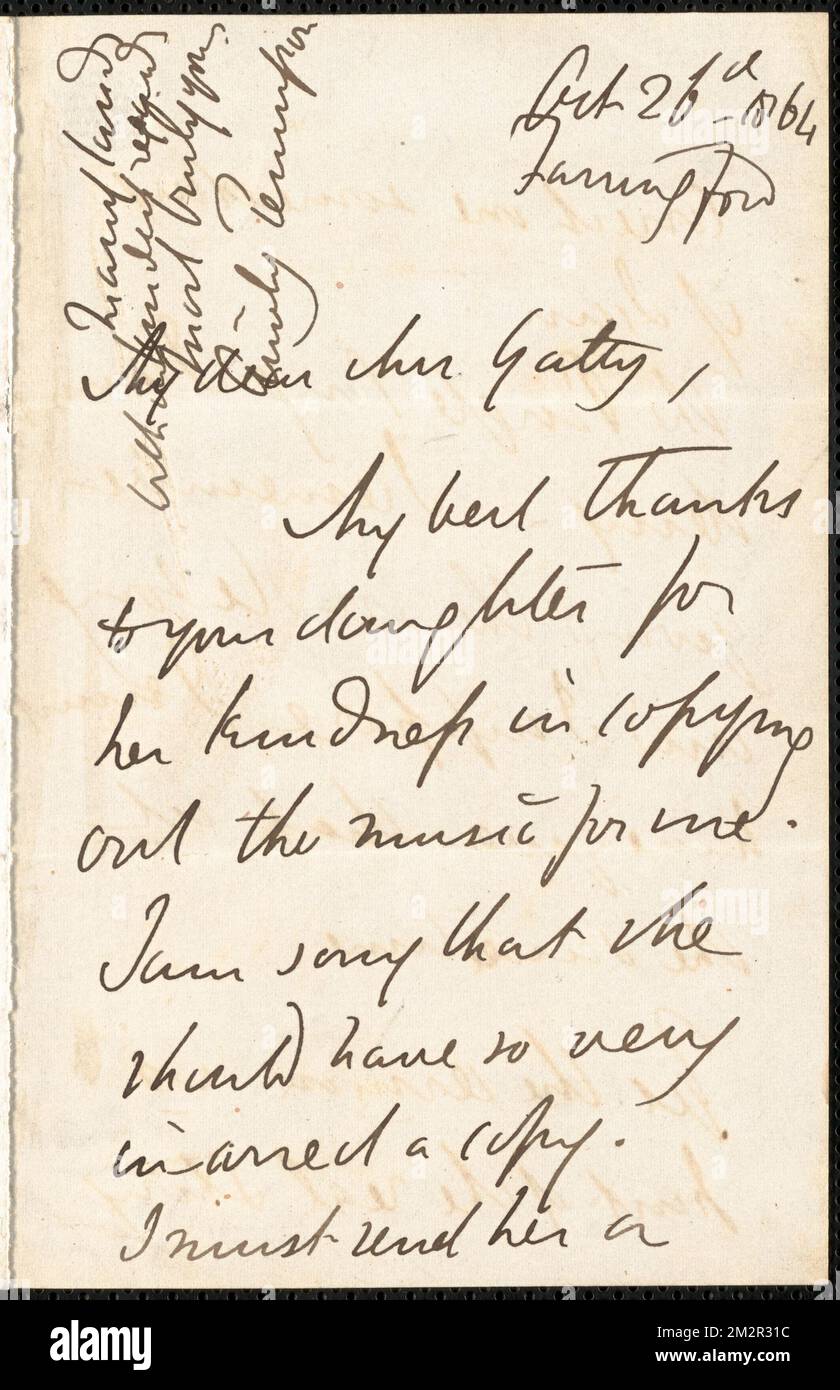 Oct 26d 1864
Farringford
My dear Mrs Gatty,
My best thanks
to your daughter for
her kindness in copying
out the music for me.
I am sorry that she
should have so very
a copy.
I must send her a
many kind
regards
most truly yours
Emily Tennyson
alamy
Image ID: 2M2R31C
www.alamy.com